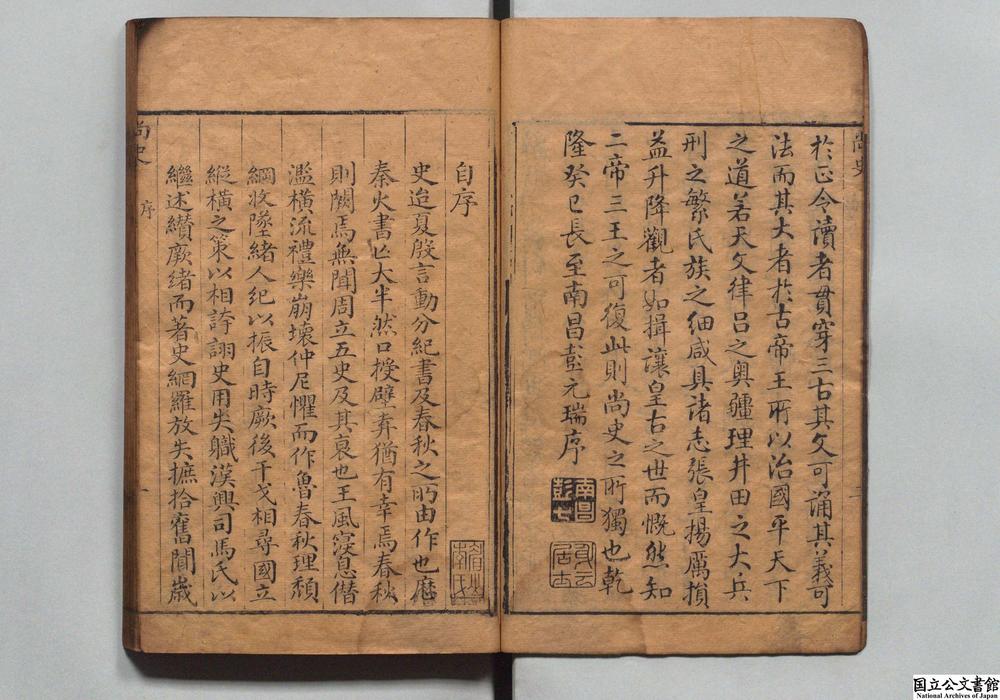 尚史
於正今讀者貫穿三古其文可誦其義可
法而其大者於古帝王所以治國平天下
之道若天文律呂之奧疆理井田之大兵
刑之繁氏族之細咸具諸志張皇揚厲損
益升降觀者如揖讓皇古之世而慨然知
二帝三王之可復此則尚史之所獨也乾
隆癸巳長至南昌彭元瑞序
南昌彭
自序
史造夏殷言動分紀書及春秋之所由作也歷
秦火書亡大半然口授壁弆猶有幸焉春秋
則闕焉無聞周立五史及其衰也王風寖息僭
濫橫流禮樂崩壞仲尼懼而作魯春秋理頹
綱收墜緒人紀以振自時厥後干戈相尋國立
縱橫之策以相誇詡史用失職漢興司馬氏以
繼述纘厥緒而著史網羅放失摭拾舊聞歲
尚史
序
一
国立公文書館
National Archives of Japan